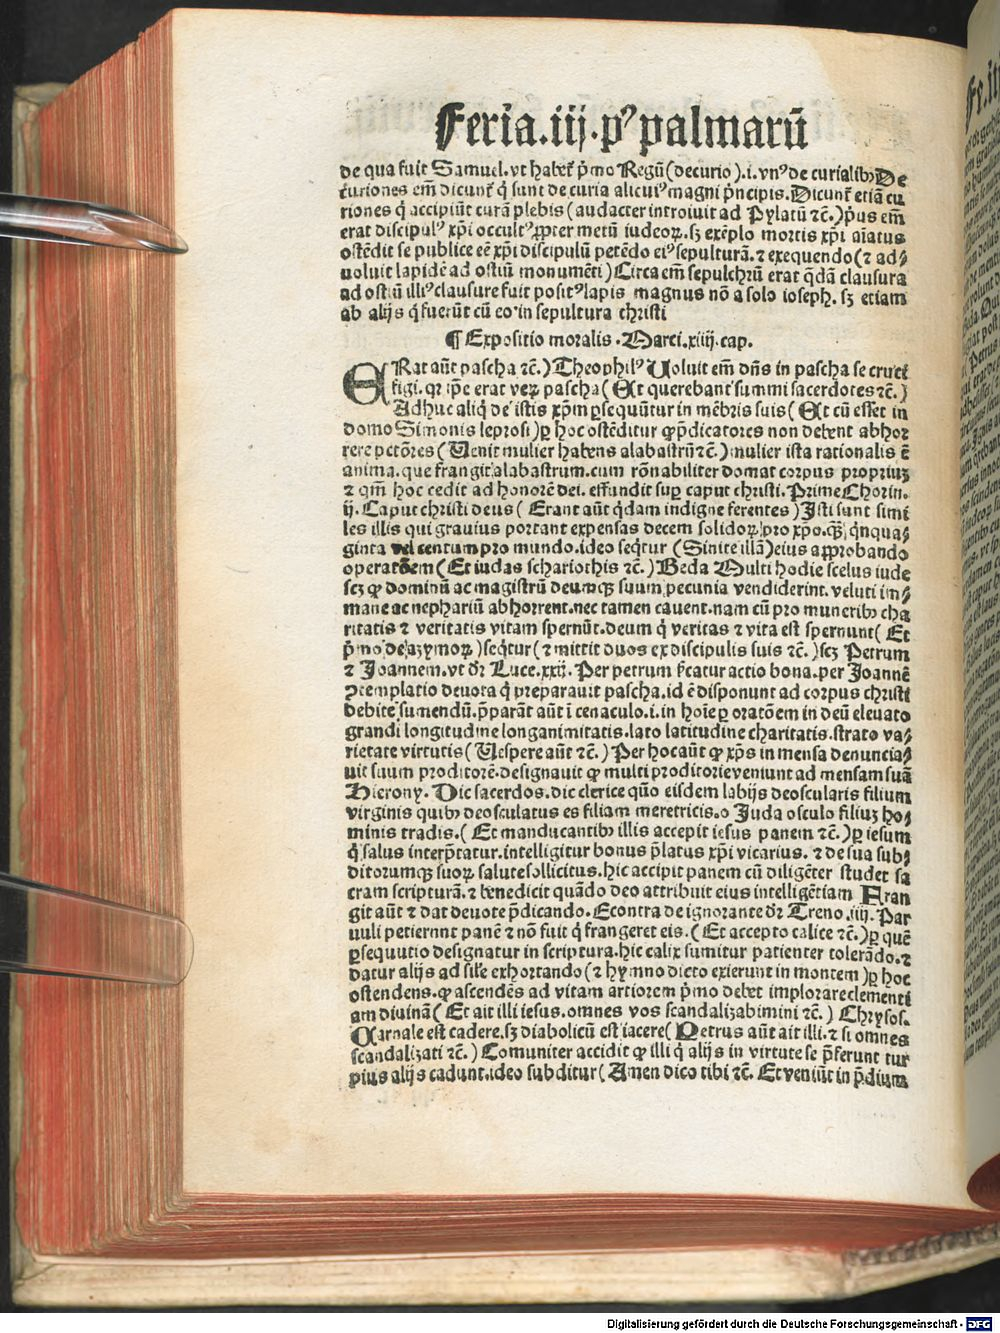 Feria.iij.pꝰ palmarū
de qua fuit Samuel.vt habet᷑ p̄mo Regū(decurio).i.vnꝰde curialibꝫ De
curiones em̄ dicunt᷑ q̇ sunt de curia alicuiꝰ magni p̄ncipis.Dicunt᷑ etiā cu
riones q̇ accipiūt curā plebis(audacter introiuit ad Pylatū ⁊c̄.)p̄us em̄
erat discipulꝰ xp̄i occultꝰ ꝓpter metū iudeoꝝ.sꝫ exēplo mortis xp̄i aīatus
ostēdit se publice eē xp̄i discipulū petēdo eiꝰ sepulturā.⁊ exequendo(⁊ ad⸗
uoluit lapidē ad ostiū monumēti)Circa em̄ sepulchrū erat q̇dā clausura
ad ostiū illiꝰ clausure fuit positꝰ lapis magnus nō a solo ioseph.sꝫ etiam
ab alijs q̇ fuerūt cū eo in sepultura christi
¶ Expositio moralis .Marci.xiiij.cap.
ERat aūt pascha ⁊c̄.)Theophilꝰ Uoluit em̄ dn̄s in pascha se cruci
figi.qꝛ ip̄e erat veꝝ pascha(Et querebant summi sacerdotes ⁊c̄.)
Adhuc aliq̇ de istis xp̄m ꝑsequūtur in mēbris suis(Et cū esset in
domo Simonis leprosi)ꝑ hoc ostēditur ꝙ p̄dicatores non debent abhor
rere pctōres(Uenit mulier habens alabastrū ⁊c̄.)mulier ista rationalis ē
anima.que frangit alabastrum.cum rōnabiliter domat corpus propriuꝫ
⁊ qm̄ hoc cedit ad honorē dei.effundit suꝑ caput christi.Prime Chorin.
ij.Caput christi deus(Erant aūt q̇dam indigne ferentes)Isti sunt simi
les illis qui grauius portant expensas decem solidoꝝ pro xp̄o.qꝫ q̇nqua⸗
ginta vel centum pro mundo.ideo seq̇tur(Sinite illā)eius approbando
operatōem(Et iudas schariothis ⁊c̄.)Beda Multi hodie scelus iude
scꝫ ꝙ dominū ac magistrū deumqꝫ suum pecunia vendiderint.veluti im⸗
mane ac nephariū abhorrent.nec tamen cauent.nam cū pro muneribꝫ cha
ritatis ⁊ veritatis vitam spernūt.deum q̇ veritas ⁊ vita est spernunt(Et
p̄mo de azymoꝝ)seq̇tur(⁊ mittit duos ex discipulis suis ⁊c̄.)scꝫ Petrum
⁊ Joannem.vt dr̄ Luce.xxij.Per petrum sīcatur actio bona.per Joannē
ꝯtemplatio deuota q̇ preparauit pascha.id ē disponunt ad corpus christi
debite sumendū.p̄parāt aūt ī cenaculo.i.in hoīe ꝑ oratōem in deū eleuato
grandi longitudine longanimitatis.lato latitudine charitatis.strato va⸗
rietate virtutis(Uespere aūt ⁊c̄.)Per hoc aūt ꝙ xp̄s in mensa denuncia⸗
uit suum proditorē.designauit ꝙ multi proditorie veniunt ad mensam suā
Hierony.Dic sacerdos.dic clerice quō eisdem labijs deoscularis filium
virginis quibꝫ deosculatus es filiam meretricis.o Juda osculo filiuꝫ ho⸗
minis tradis.(Et manducantibꝫ illis accepit iesus panem ⁊c̄.)ꝑ iesum
q̇ salus interp̄tatur.intelligitur bonus p̄latus xp̄i vicarius.⁊ de sua sub⸗
ditorumqꝫ suoꝝ salute sollicitus.hic accipit panem cū diligēter studet sa
cram scripturā.⁊ benedicit quādo deo attribuit eius intelligētiam Fran
git aūt ⁊ dat deuote p̄dicando.Econtra de ignorante dr̄ Treno.iiij.Par
uuli petierunt panē ⁊ nō fuit q̇ frangeret eis.(Et accepto calice ⁊c̄.)ꝑ quē
ꝑsequutio designatur in scriptura.hic calix sumitur patienter tolerādo.⁊
datur alijs ad sīle exhortando(⁊ hymno dicto exierunt in montem)ꝑ hoc
ostendens.ꝙ ascendēs ad vitam artiorem p̄mo debet implorare clementi
am diuinā(Et ait illi iesus.omnes vos scandalizabimini ⁊c̄.)Chrysos.
Carnale est cadere.sꝫ diabolicū est iacere(Petrus aūt ait illi.⁊ si omnes
scandalizati ⁊c̄.)Comuniter accidit ꝙ illi q̇ alijs in virtute se p̄ferunt tur
pius alijs cadunt.ideo subditur(Amen dico tibi ⁊c̄.Et veniūt in p̄dium
Digitalisierung gefördert durch die Deutsche Forschungsgemeinschaft - DFG